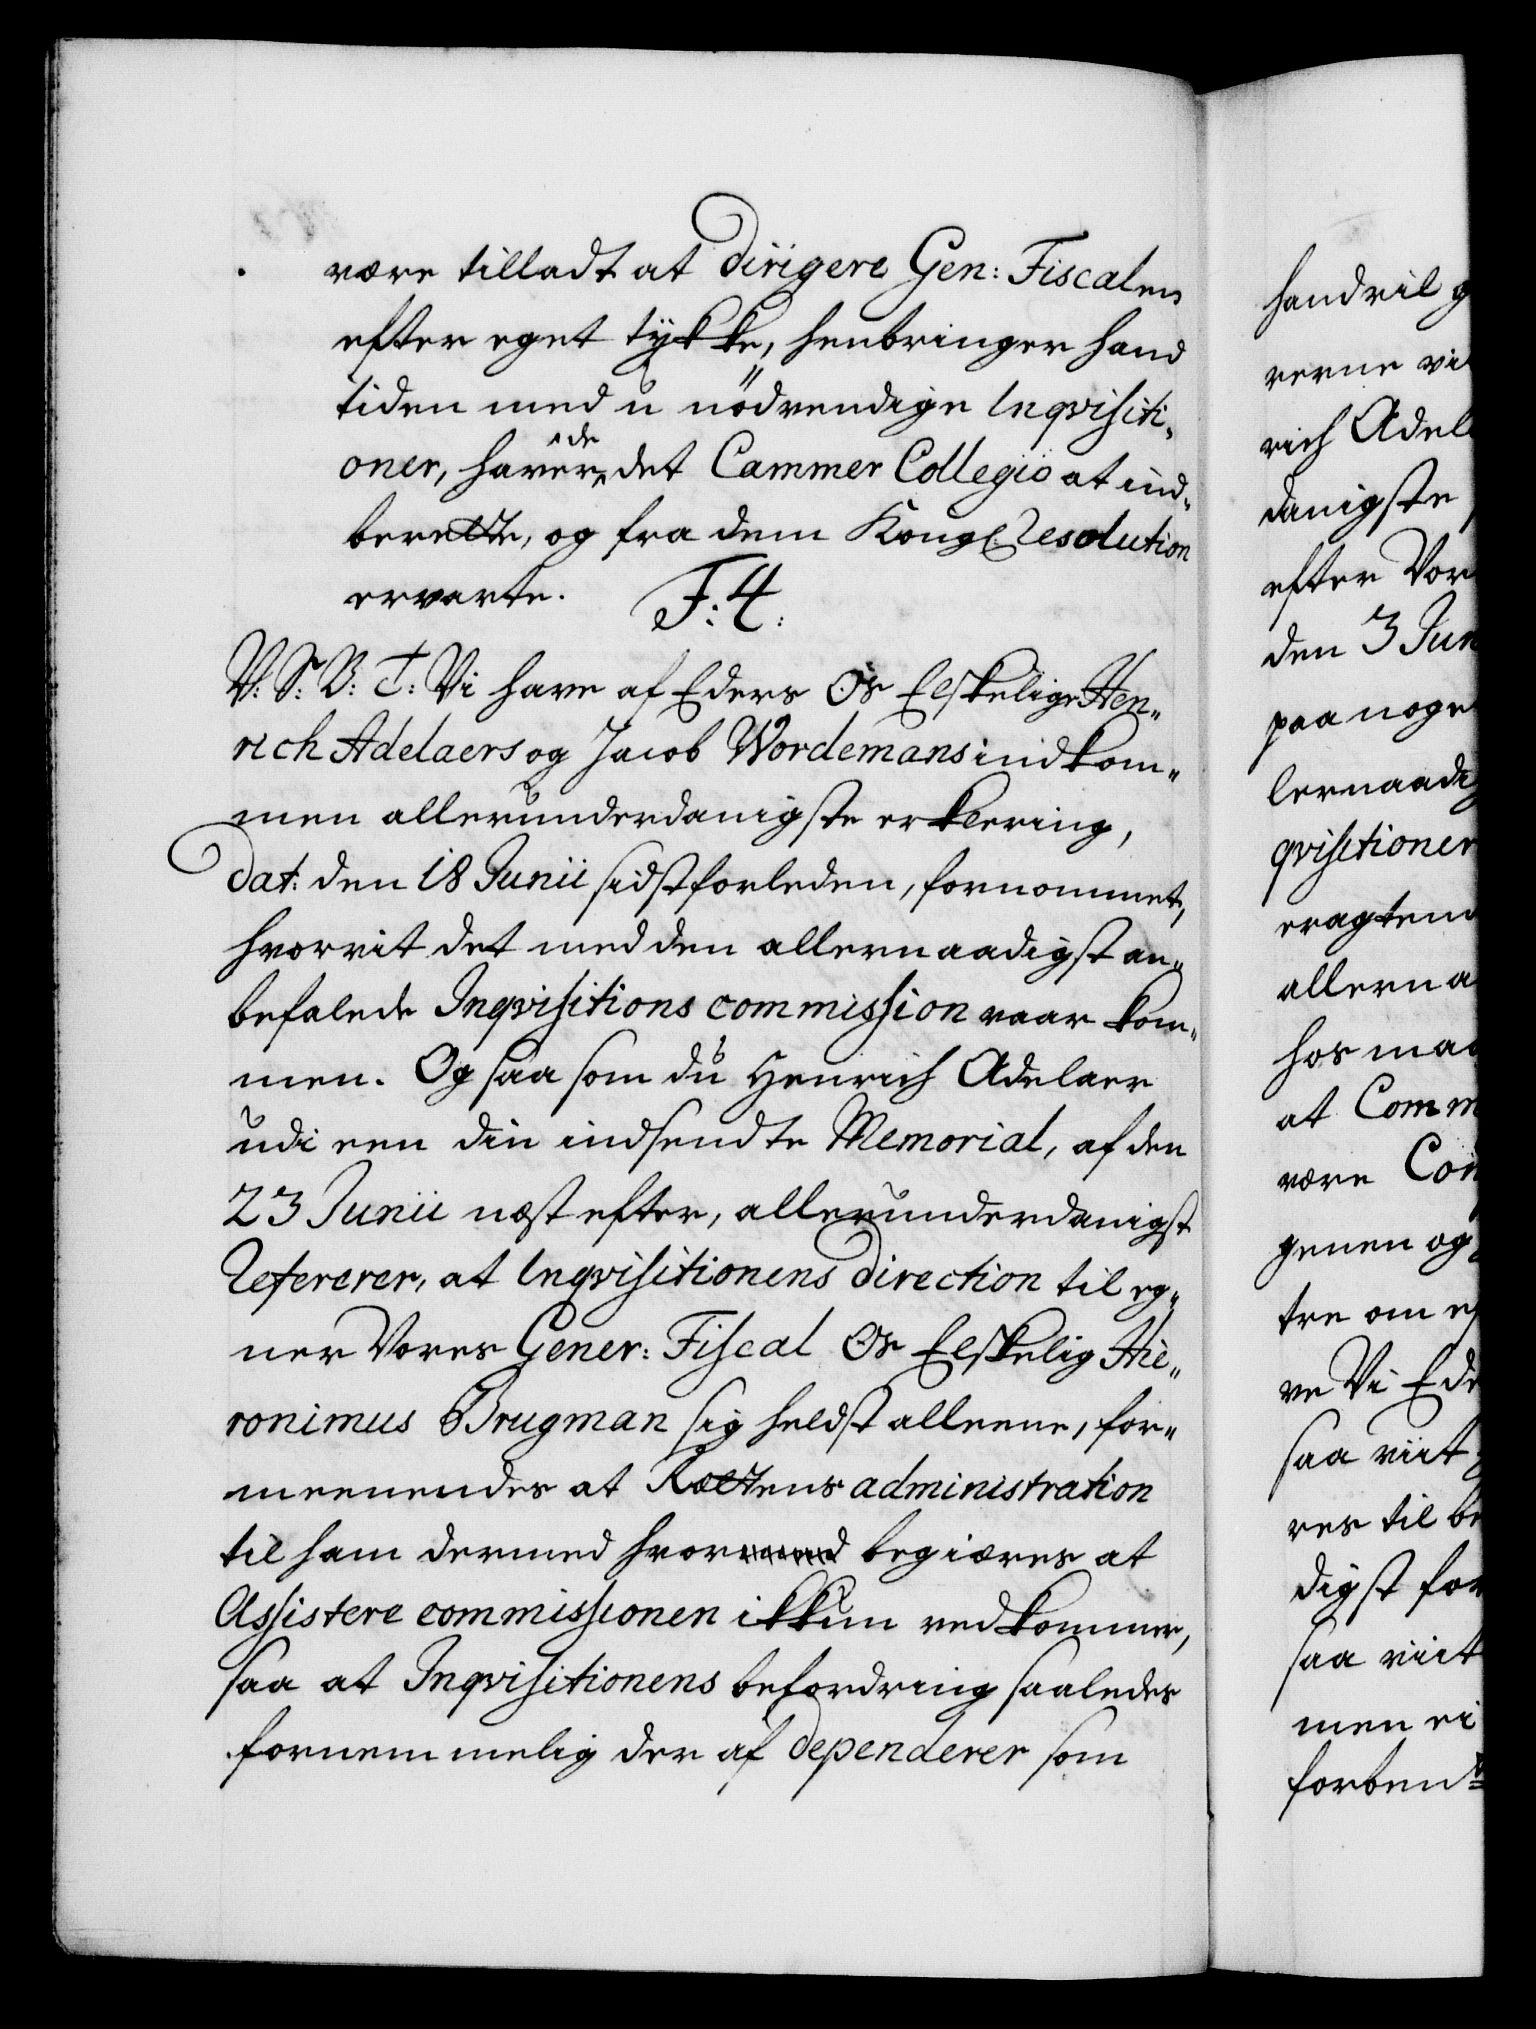 være tilladt at dirigere Gen: Fiscalen
efter eget tykke, henbringer hand
tiden med u nödvendige Inqvisiti„
oner, haver de det Cammer Collegio at ind„
berette, og fra dem Kongl. Resolution
ervarte.
F: 4:
V: S: B: T: Vi have af Eders Os Elskelige Hen„
rich Adelaers og Jacob Wordemans indkom„
men allerunderdanigste erklering,
dat: den 18 Junii sidstforleden, fornommet,
hvorvit det med den allernaadigst an„
befalede Inqvisitions commission vaar kom„
men. Og saa som du Henrich Adelaer
udi een din indsendte Memorial, af den
23 Junii næst efter, allerunderdanigst
Refererer, at Inqvisitionens direction til eg„
ner Vores Gener: Fiscal Os Elskelig Hie„
ronimus Brugman sig heldst alleene, for„
meenendes at Rættens administration
til ham dermed hvor begiæres at
Assistere commissionen ikkun vedkommer,
saa at Inqvisitionens befordring saaledes
fornemmelig der af dependerer som
handvil g
rerne vi
rich Adel
danigste
efter Vor
den 3 Jun
paa noge
lernaadi
qvisitioner
eragten
allerna
hos ma
at Comm
være Con
genen og
tre om e
ve Vi Ede
saa viit
res til be
digst for
saa viit
men ei
forben